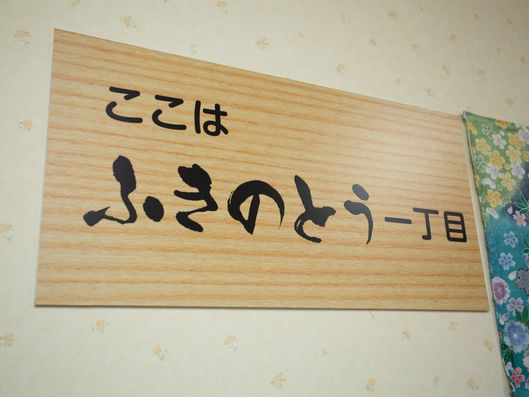 ここは
ふきのとう一丁目